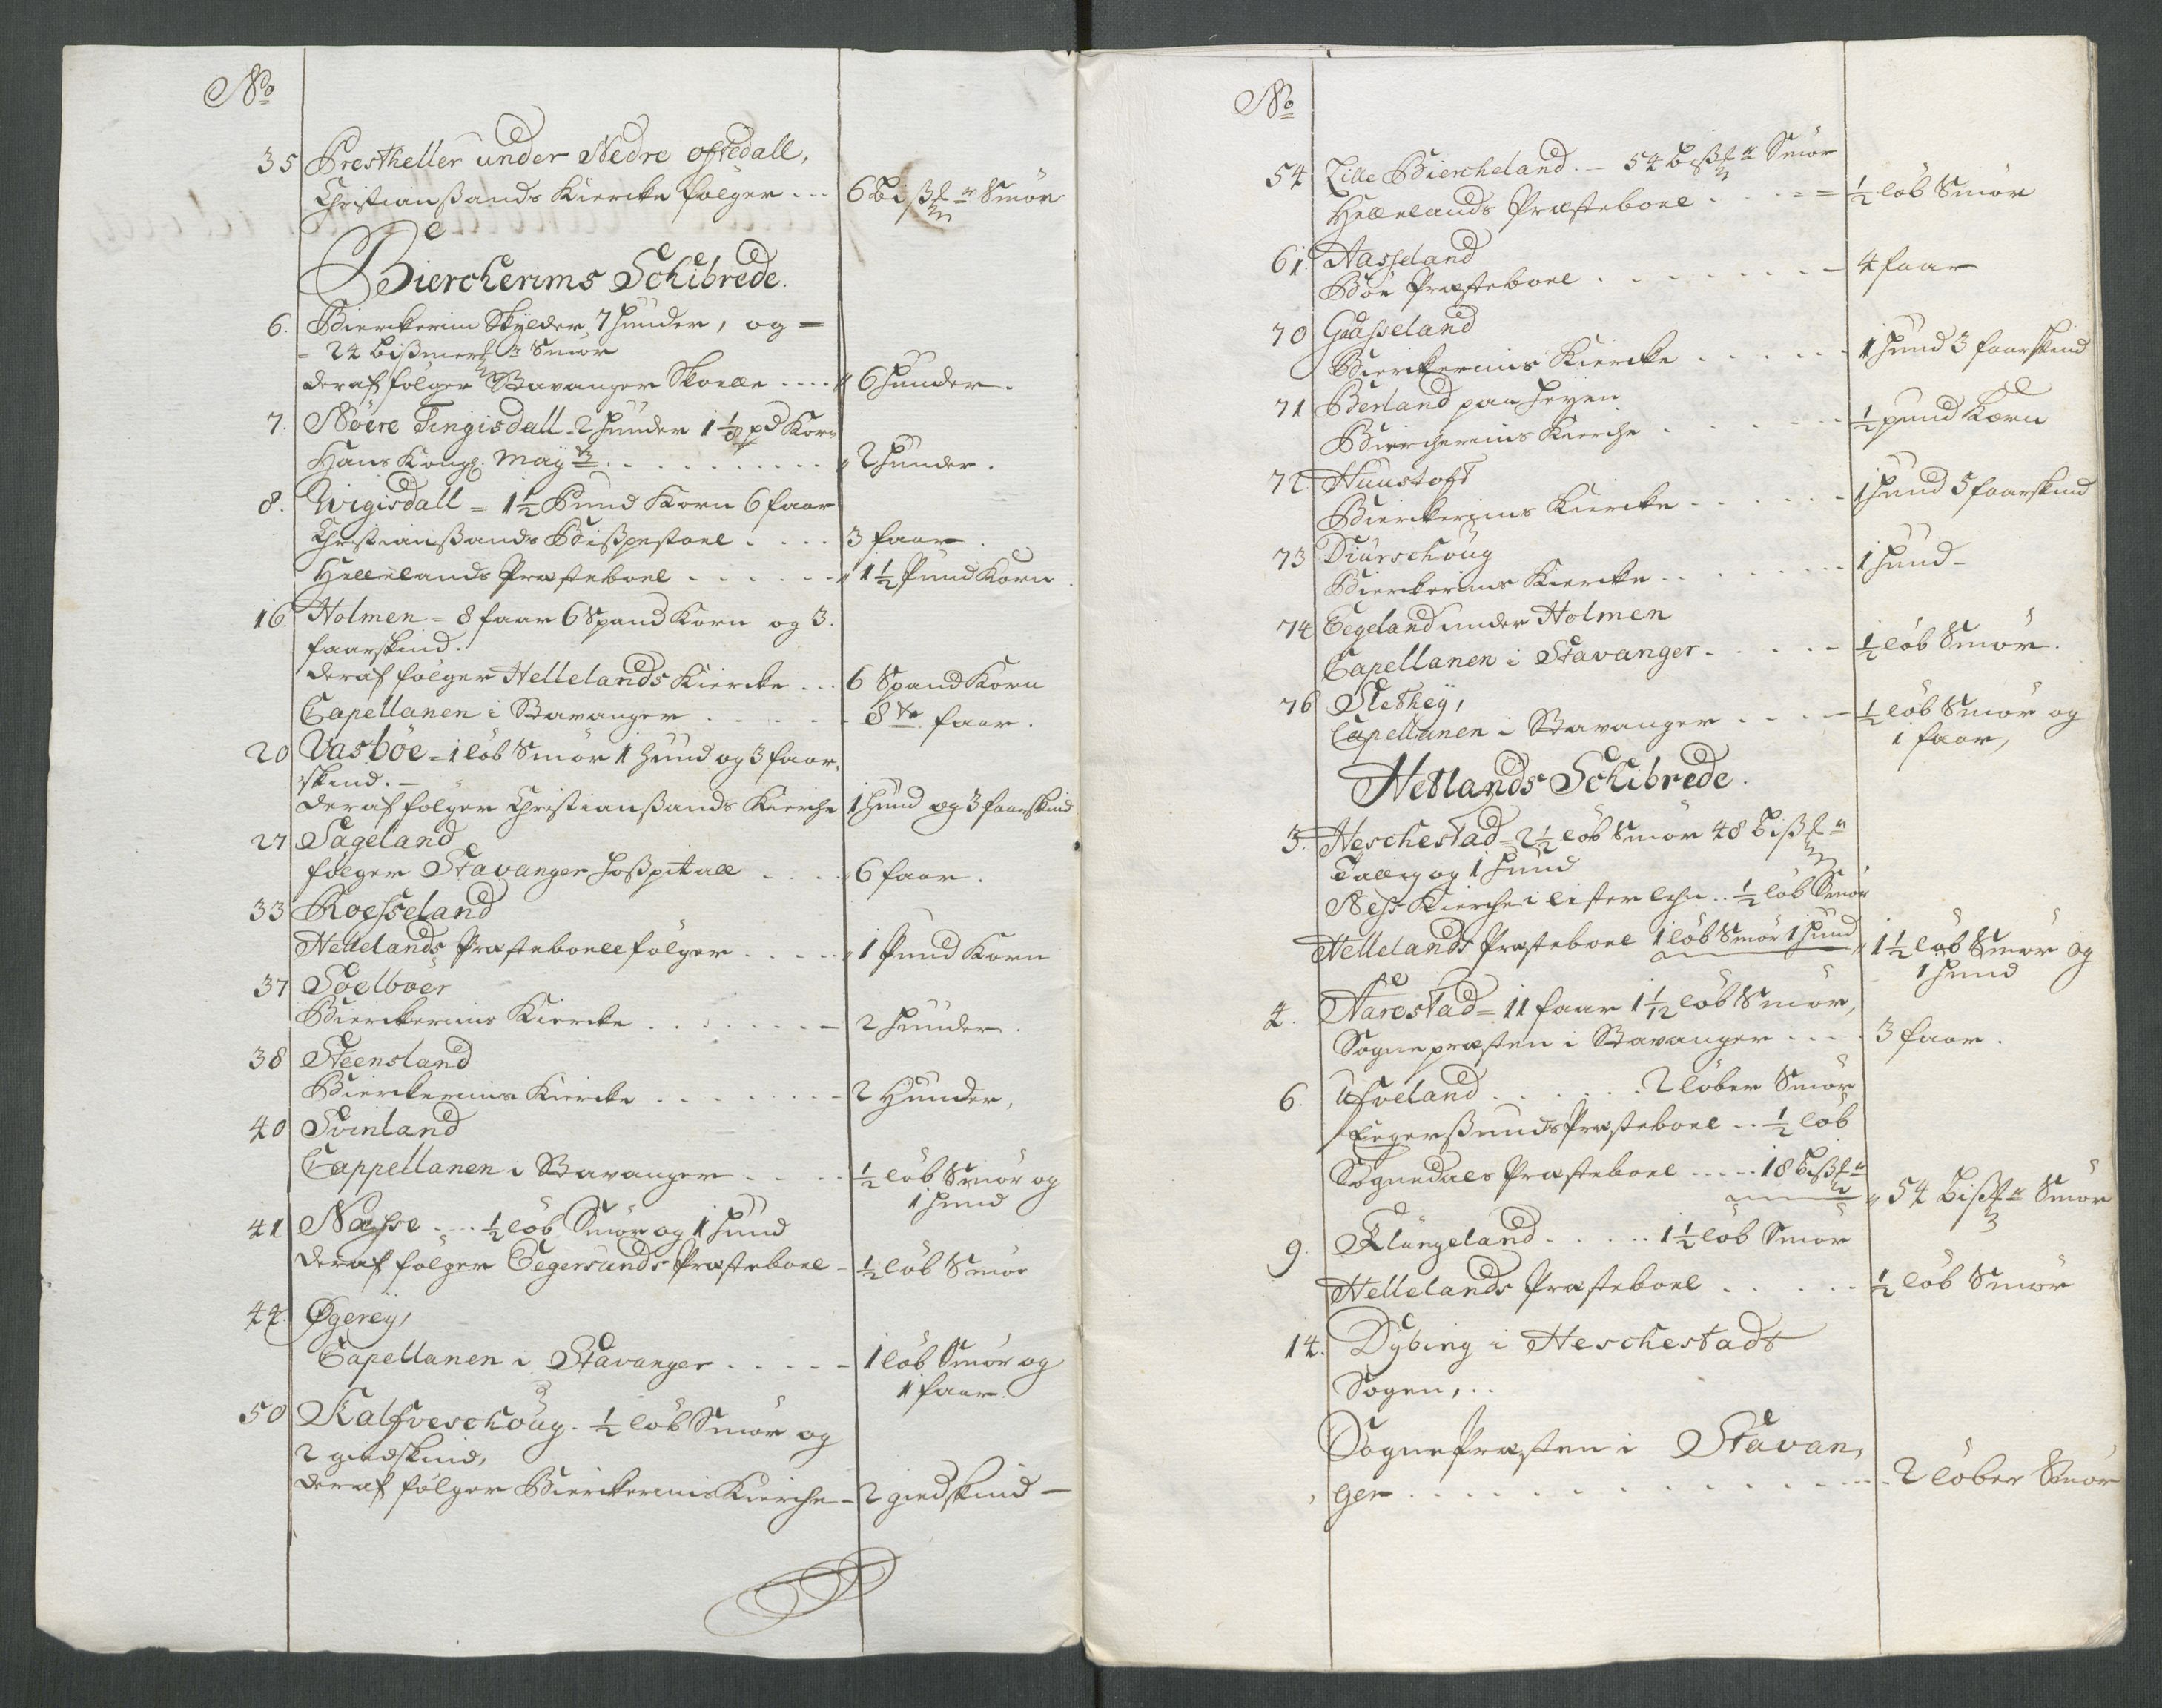 No
35 Prestheller under Nedre ofsedall,
Christiansands Kiercke følger ... 6 bißmr Smør
Biercherims Schibrede.
6. Bierckerim Skylder, 7 huuder, og =
- 24 bißmerkr Smør
deraf følger Stavanger Skoele .... 6 huuder.
7. Nöere Tingisdall - 2 huuder 1 1/8 pd Korn
Hans Kongl. May tt .......... 2 huuder.
8. Wigisdall = 1½ Pund Korn 6 faar
Christiansands Bißpestoel .... 3 faar
Hellelands Præsteboel ...... 1½ Pund Korn.
16. Holmen = 8 faar 6 Spand Korn og 3.
faarskind.
deraf følger Hellelands Kiercke ... 6 Spand Korn
Capellanen i Stavanger ..... 8te faar.
20 Vasböe - 1 löb Smör 1 Huud og 3 faar,
skind. -
deraf følger Christiansands Kierche 1 huud og 3 faarskind
27 Sageland
følger Stavanger Hoßpitall .... 6 faar.
33 Roesseland
Hellelands Præsteboell følger .... 1 Pund Korn
37 Soelböer
Bierckerims Kiercke ........ 2 huuder.
38 Steensland
Bierckerims Kiercke ........ 2 Huuder,
40 Svinland
Cappellanen i Stavanger .... ½ löb Smör og
1 huud
41 Næsse .... ½ löb Smör og 1 huud
deraf følger Eegersunds Præsteboel - ½ löb Smör
44. Øgereÿ,
Capellanen i Stavanger ..... 1 löb Smör og
1 faar.
50 Kalfveschoug. ½ löb Smör og
2 giedskind,
deraf følger Bierckerims Kierche - 2 giedskind -
No
54 Lille Biercheland. - 54 bißmr Smör
Hellelands Præsteboel ..... ½ löb Smör
61. Aasseland
Böe Præsteboel ........ 4 faar
70 Gaasseland
Bierckerims Kiercke ...... 1 huud 3 faarskind
71 Berland paa Heyen
Biercherims Kierche ...... ½ pund Korn
72 Huustoft
Bierckerims Kiercke ...... 1 huud 5 faarskind
73 Diurschoug
Bierckerims Kiercke ....... 1 huud -
74 Eegeland under Holmen
Capellanen i Stavanger ..... ½ löb Smör.
76 Sletheÿ,
Capellanen i Stavanger .... ½ löb Smör og
1 faar,
Hetlands Schibrede.
3. Heschestad = 2½ löb Smör 48 bißmr
Tallig og 1 huud
Ness Kierche i Lister lehn .. ½ löb Smör
Hellelands Præsteboel 1 löb Smör 1 huud 1½ löb Smör og
1 huud
4. Aarestad = 11 faar 1 1/12 löb Smör,
Sognepræsten i Stavanger .... 3 faar.
6. Ufveland ...... 2 löber Smör
Eegersunds Præsteboel .. ½ löb
Sogndals Præsteboel ..... 18 bißmr 54 bißmr Smör
9. Klungeland ..... 1½ löb Smör
Hellelands Præsteboel ..... ½ löb Smör
14. Dybing i Heschestadt
Sogen, ..
Sognepræsten i Stavan,
ger ............... 2 löber Smör